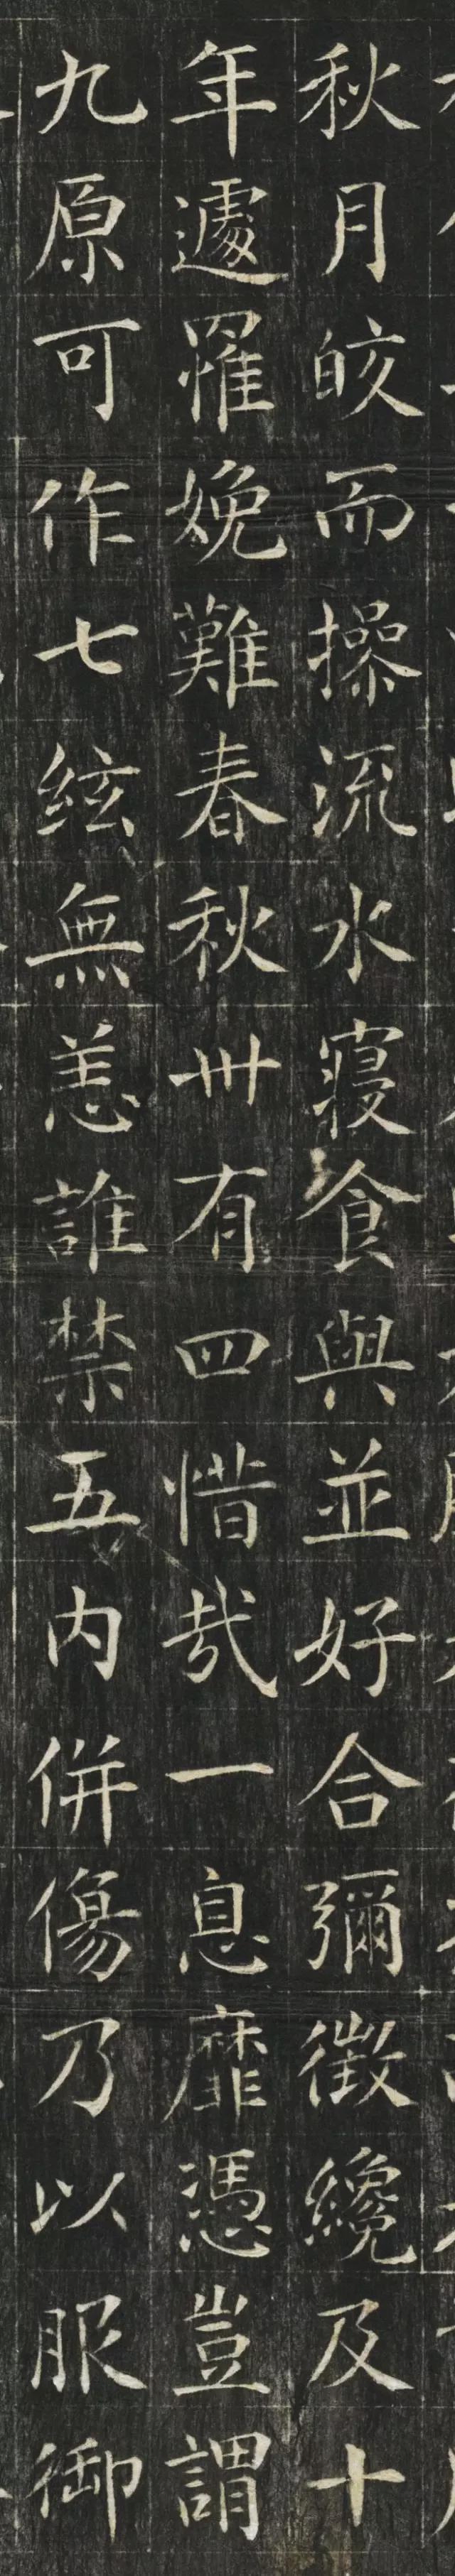 秋月皎而操流水寢食與並好合彌徵纔及十
年遽罹娩難春秋卅有四惜哉一息靡憑豈謂
九原可作七絃無恙誰禁五内併傷乃以服御